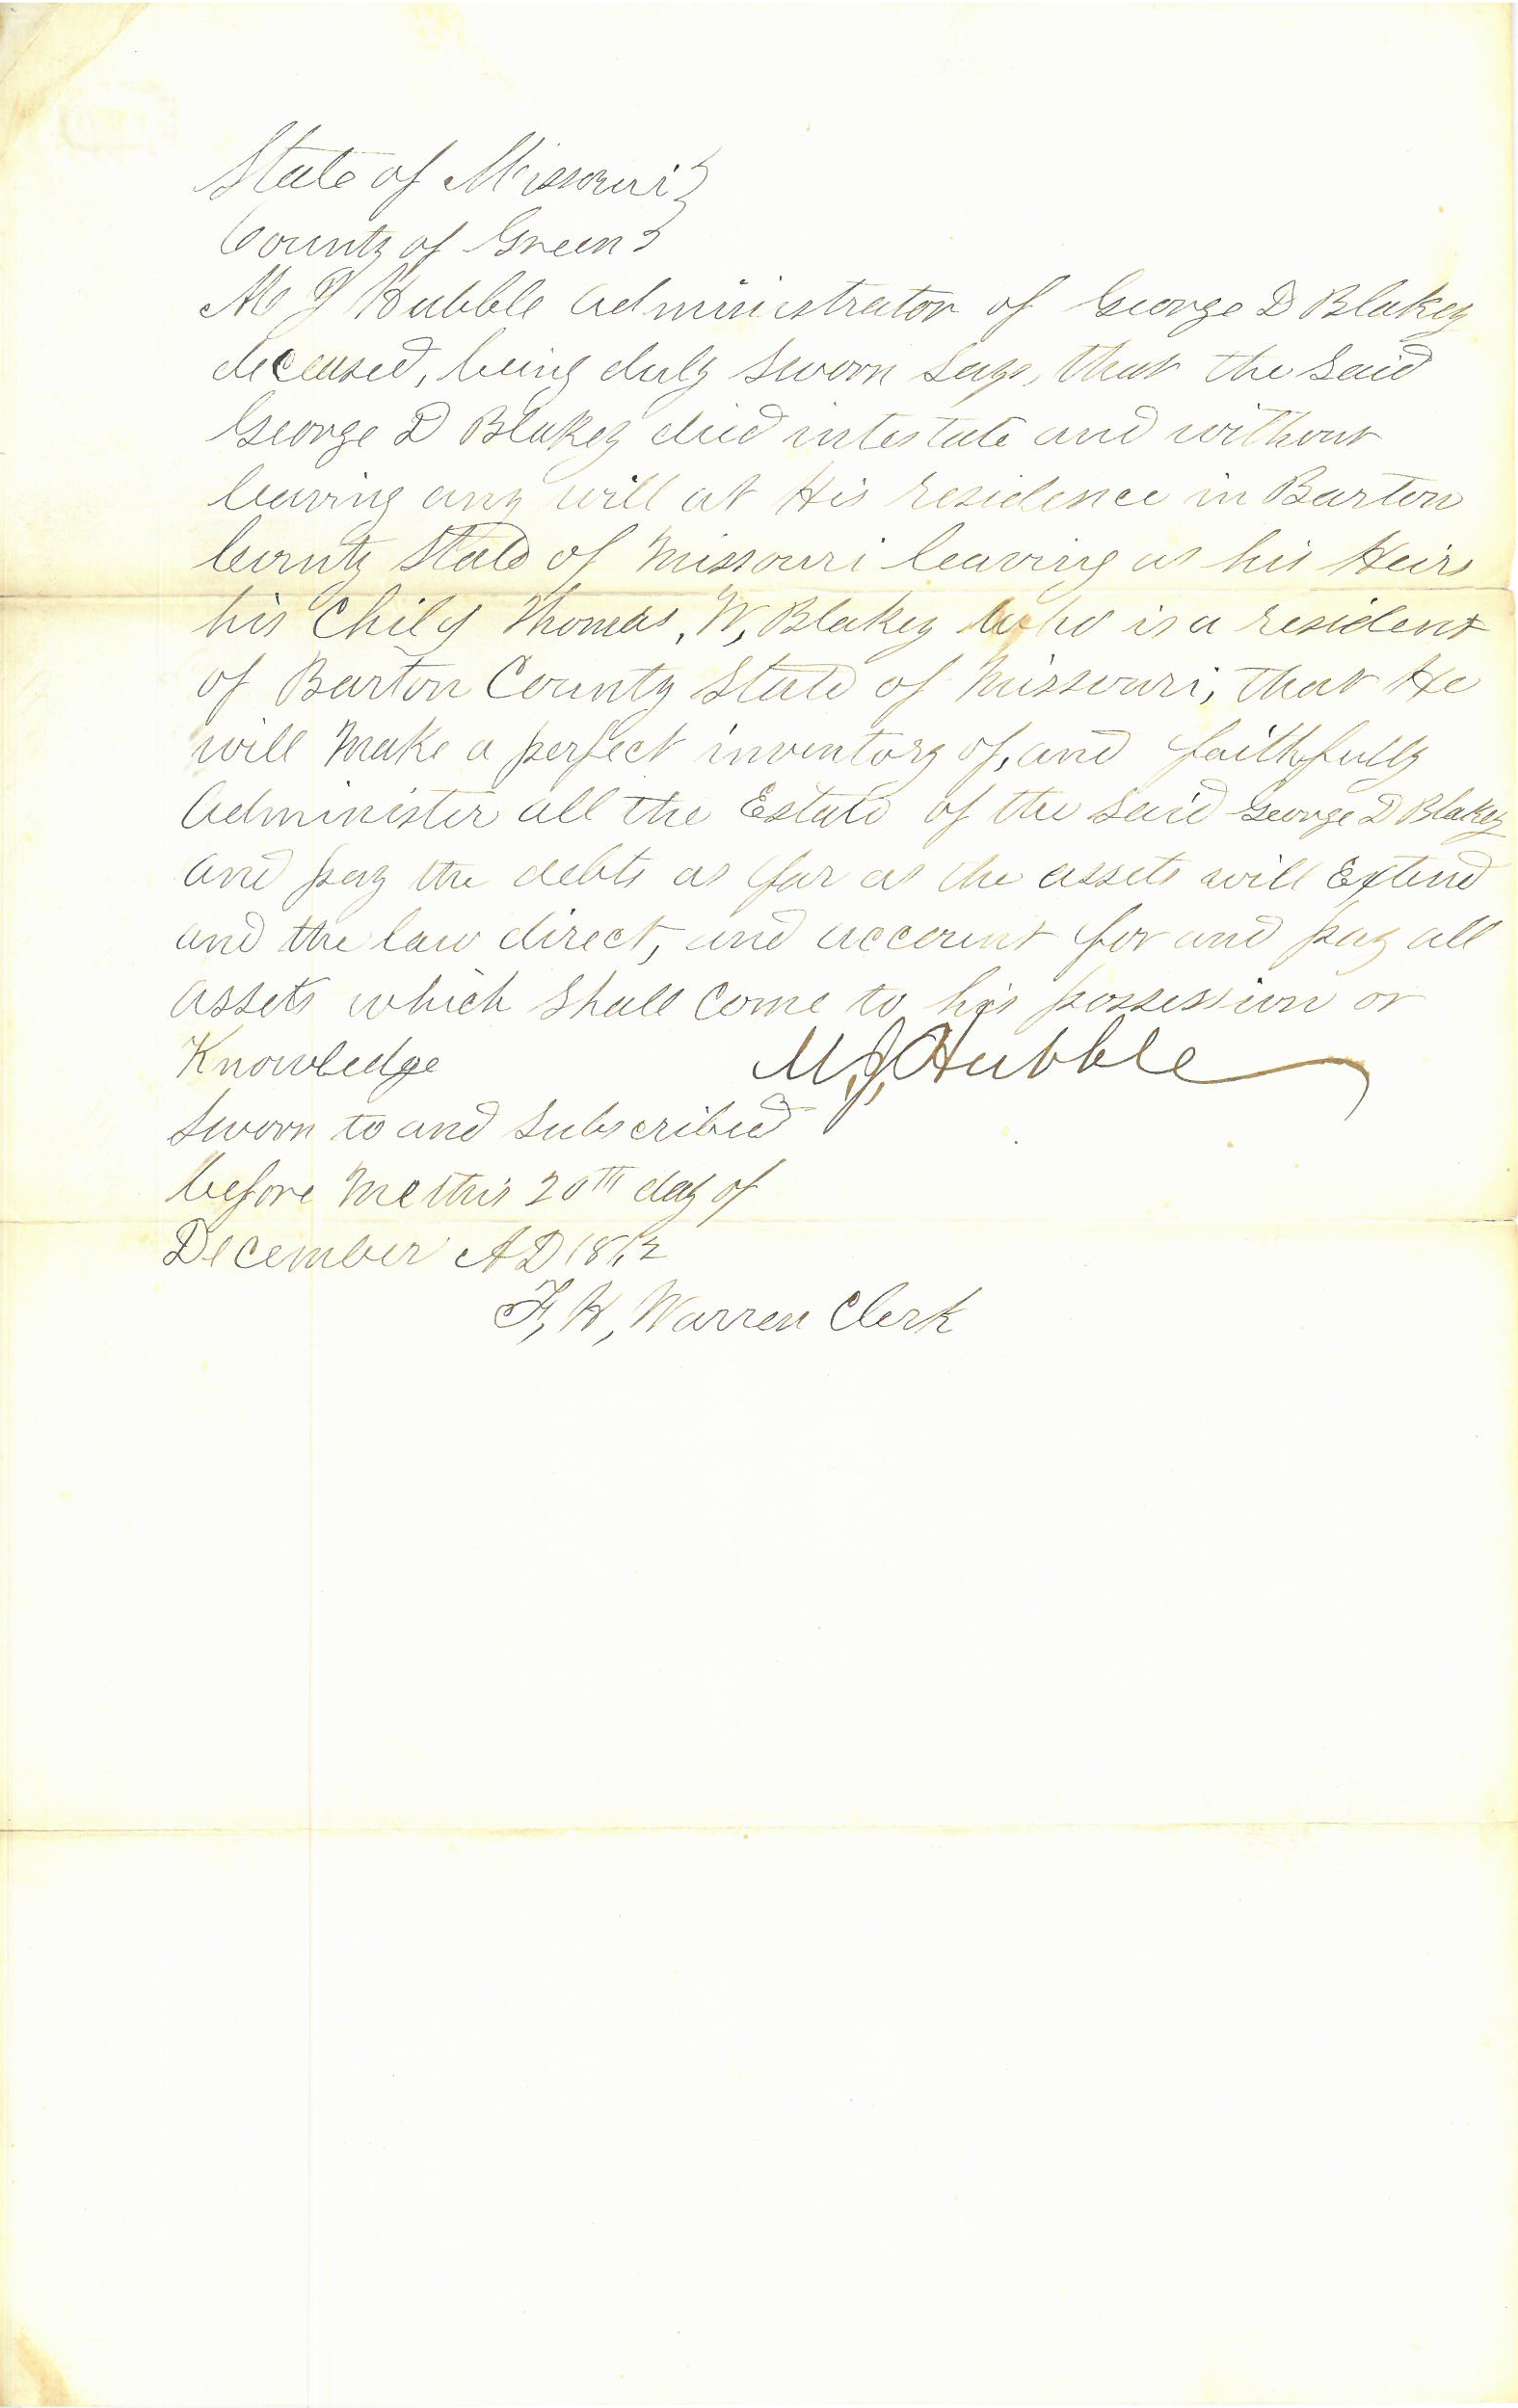 State of Missouri }
County of Green }
M J Hubble Administrator of George D Blakey
deceased, being duly sworn says, that the said
George D Blakey died intestate and without
leaving any will at His residence in Barton
County State of Missouri leaving as his Heirs
his Child Thomas, W, Blakey who is a resident
of Barton County State of Missouri, that He
will Make a perfect inventory of, and faithfully
Administer all the Estate of the said George D Blakey
and pay the debts as far as the assets will Extend
and the law direct, and account for and pay all
assets which shall come to his possession or
Knowledge M,J,Hubble
Sworn to and Subscribed
before me this 20th day of
December AD
F, H, Warren Clerk